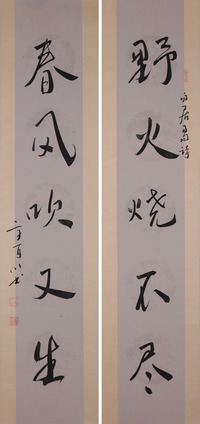 野火烧不尽
白居易诗
春风吹又生